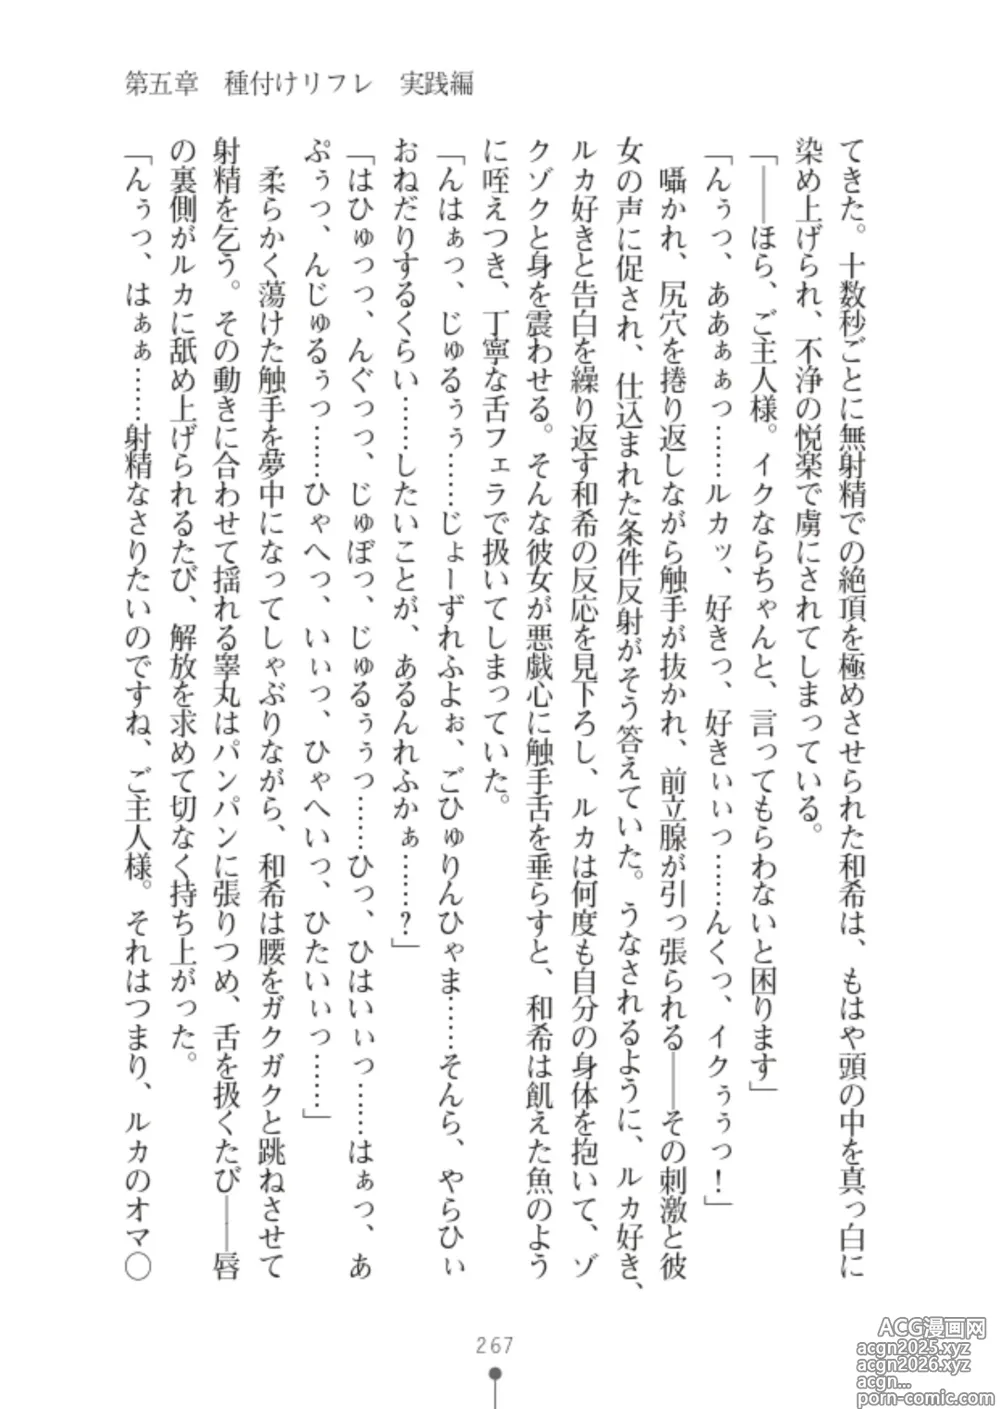 第五章　種付けリフレ　実践編
てきた。十数秒ごとに無射精での絶頂を極めさせられた和希は、もはや頭の中を真っ白に
染め上げられ、不浄の悦楽で虜にされてしまっている。
「――ほら、ご主人様。イクならちゃんと、言ってもらわないと困ります」
「んぅっ、ああぁぁっ……ルカッ、好きっ、好きぃぃっ……んくっ、イクぅぅっ！」
囁かれ、尻穴を捲り返しながら触手が抜かれ、前立腺が引っ張られる――その刺激と彼
女の声に促され、仕込まれた条件反射がそう答えていた。うなされるように、ルカ好き、
ルカ好きと告白を繰り返す和希の反応を見下ろし、ルカは何度も自分の身体を抱いて、ゾ
クゾクと身を震わせる。そんな彼女が悪戯心に触手舌を垂らすと、和希は飢えた魚のよう
に咥えつき、丁寧な舌フェラで扱いてしまっていた。
「んはぁっ、じゅるぅぅ……じょーずれふよぉ、ごひゅりんひゃま……そんら、やらひぃ
おねだりするくらい……したいことが、あるんれふかぁ……？」
「はひゅっっ、んぐっっ、じゅぼっ、じゅるぅぅっ……ひっ、ひはいぃっ……はぁっ、あ
ぷぅっ、んじゅるぅっ……ひゃへっ、いぃっ、ひゃへいっ、ひたいぃっ……」
柔らかく蕩けた触手を夢中になってしゃぶりながら、和希は腰をガクガクと跳ねさせて
射精を乞う。その動きに合わせて揺れる睾丸はパンパンに張りつめ、舌を扱くたび――唇
の裏側がルカに舐め上げられるたび、解放を求めて切なく持ち上がった。
「んぅっ、はぁぁ……射精なさりたいのですね、ご主人様。それはつまり、ルカのオマ〇
267
ACG漫画网
acgn2025.xyz
acgn2026.xyz
acgn...
porn-comic.com